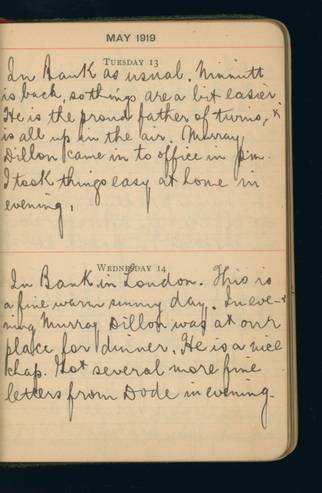 MAY 1919
TUESDAY 13
In Bank as usual. Nimmitt
is back, so things are a bit easier.
He is the proud father of twins, &
is all up in the air. Murray
Dillon came in to office in p.m.
I took things easy at home in
evening.
WEDNESDAY 14
In Bank in London. This is
a fine warm sunny day. In eve-
ning Murray Dillon was at our
place for dinner. He is a nice
chap. Got several more fine
letters from Dode in evening.